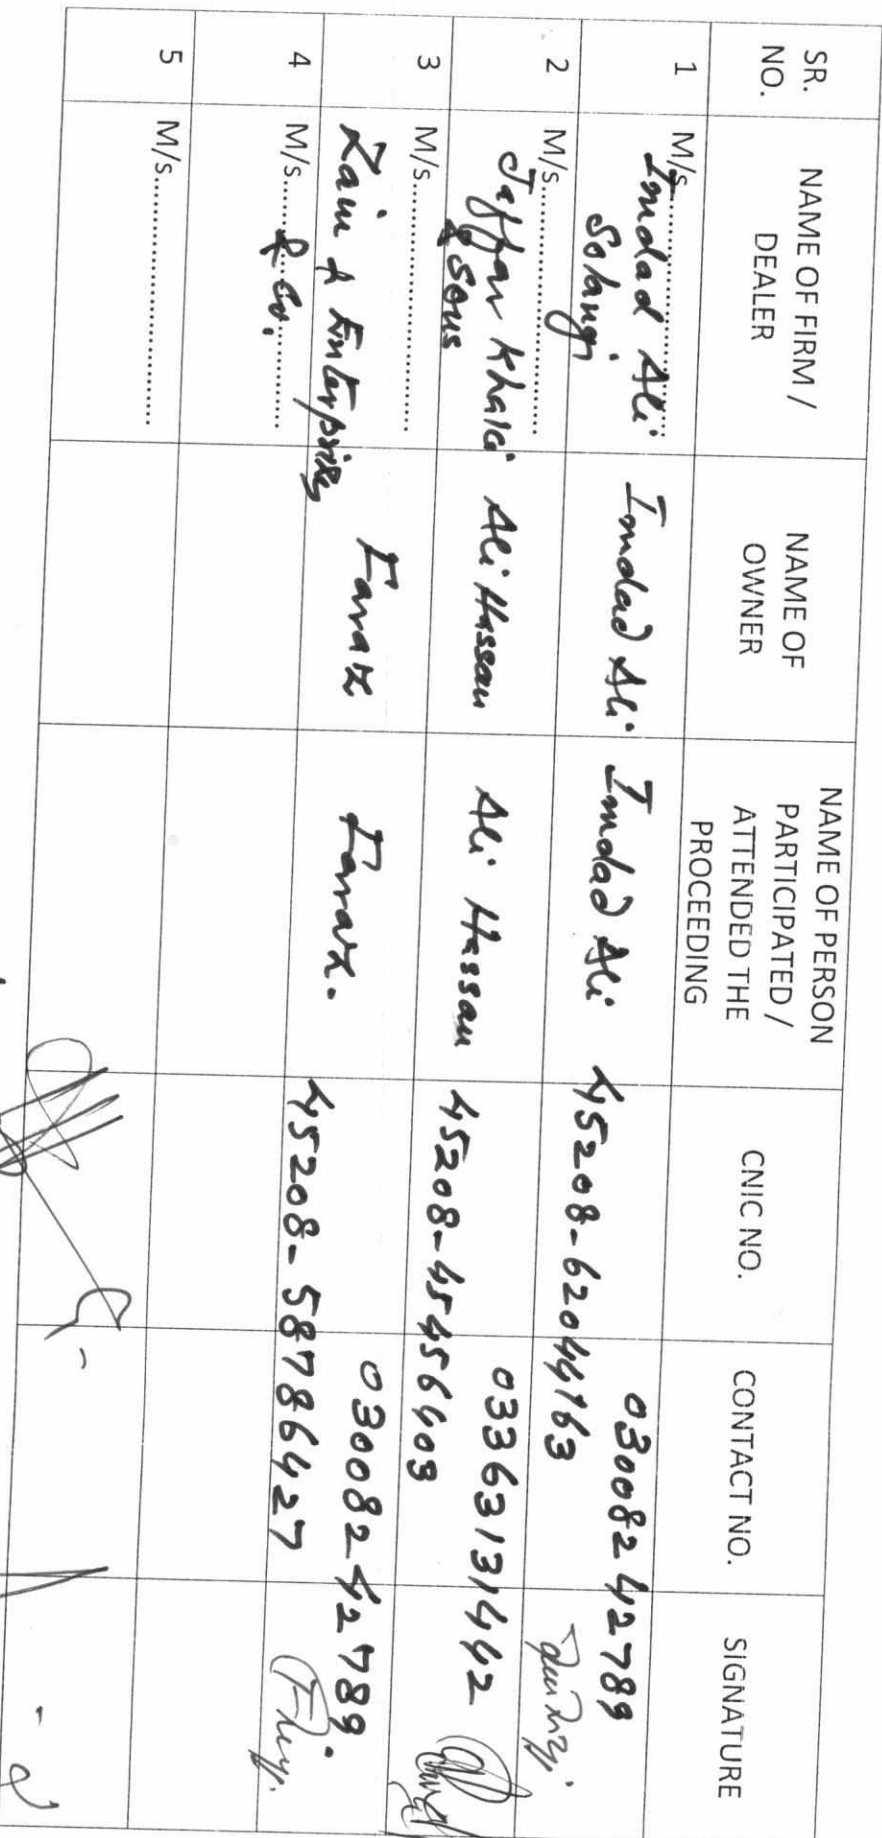 SR. NO.
NAME OF FIRM / DEALER
NAME OF OWNER
NAME OF PERSON PARTICIPATED / ATTENDED THE PROCEEDING
CNIC NO.
CONTACT NO.
SIGNATURE
1
M/s....................
Imdad Ali
Solangi
Imdad Ali
Imdad Ali
45208-6204463
03008242789
2
M/s....................
Jaffar Khalid
& Sons
Ali Hassan
Ali Hassan
45208-45456403
03363131442
3
M/s....................
Zain & Enterprises
& Co.
Faraz
Faraz.
45208-58786427
03008242789.
4
M/s....................
5
M/s....................